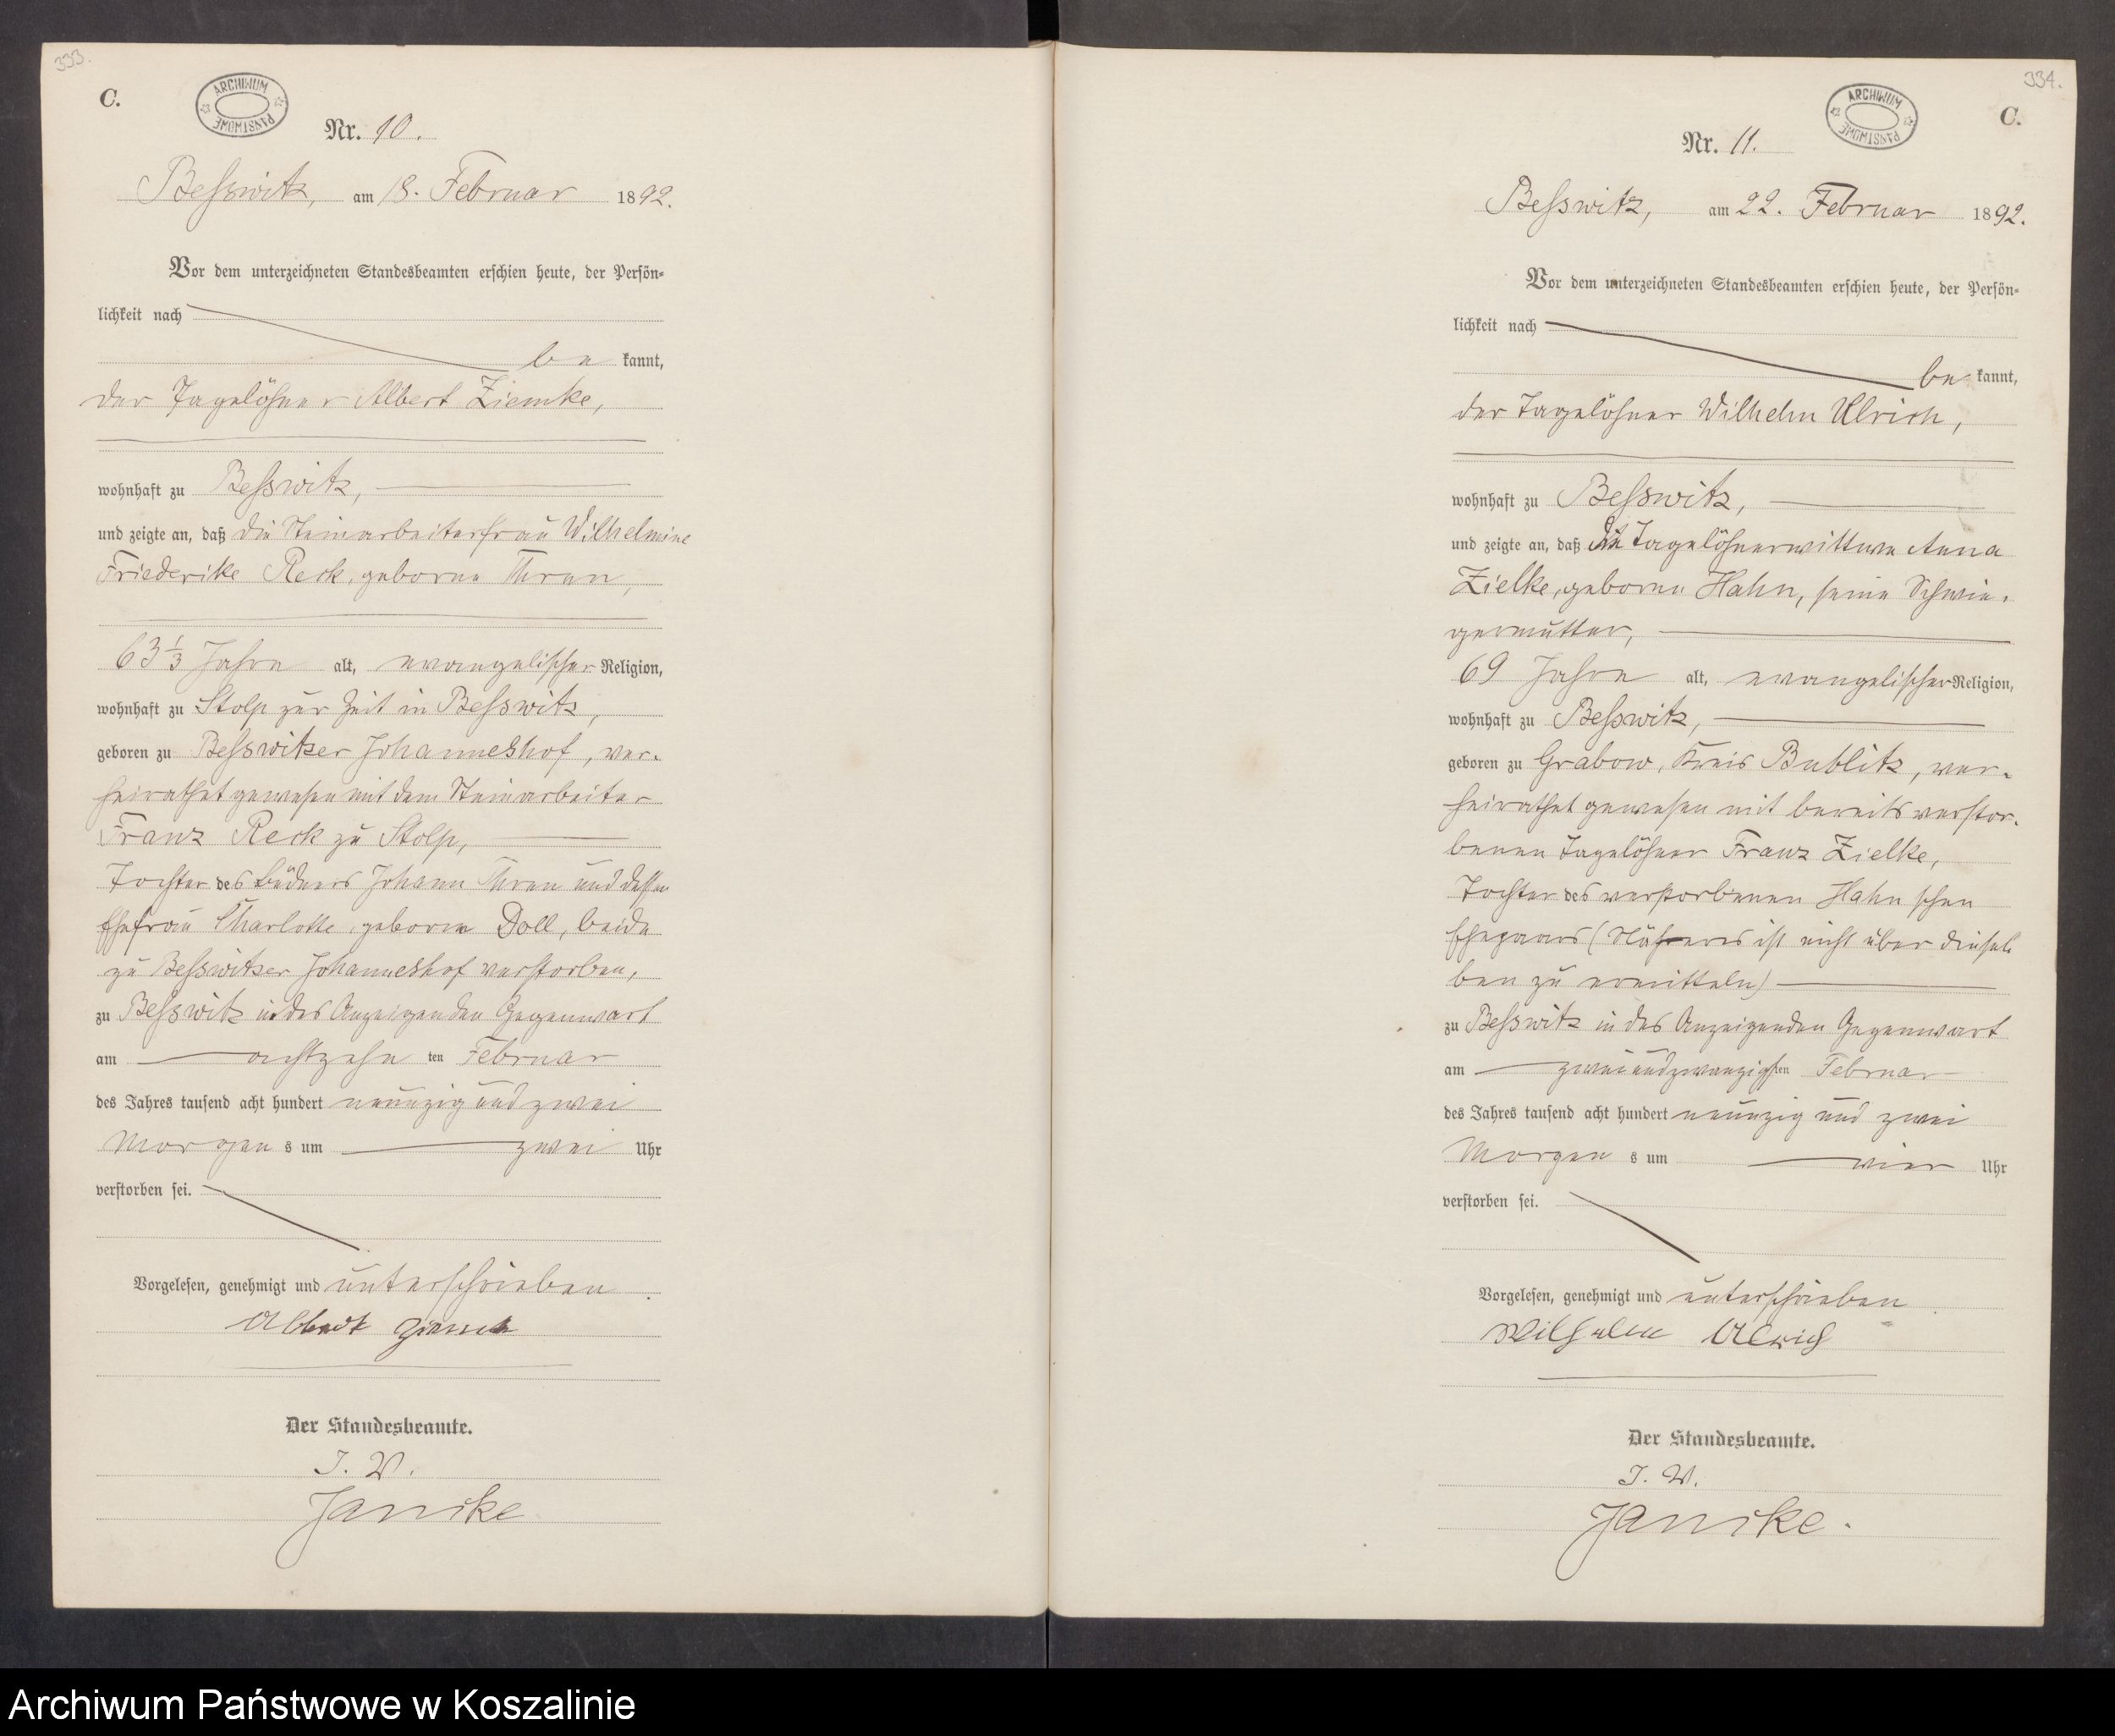 333.
C.
ARCHIWUM PAŃSTWOWE
Nr. 10.
Besswitz, am 18. Februar 1892.
Vor dem unterzeichneten Standesbeamten erschien heute, der Persön-
lichkeit nach
be kannt,
der Tagelöhner Albert Ziemke,
wohnhaft zu Besswitz,
und zeigte an, daß die Steinarbeiterfrau Wilhelmine
Friederike Reck, geborne Thren,
63 1/3 Jahre alt, evangelischer Religion,
wohnhaft zu Stolp zur Zeit in Besswitz,
geboren zu Besswitzer Johanneshof, ver-
heirathet gewesen mit dem Steinarbeiter
Franz Reck zu Stolp,
Tochter des Büdners Johann Thren und dessen
Ehefrau Charlotte, geborne Doll, beide
zu Besswitzer Johanneshof verstorben,
zu Besswitz in des Anzeigenden Gegenwart
am achtzehn ten Februar
des Jahres tausend acht hundert neunzig und zwei
Morgen s um zwei Uhr
verstorben sei.
Vorgelesen, genehmigt und unterschrieben.
Albert
Der Standesbeamte.
I. V.
Janike
334.
C.
ARCHIWUM PAŃSTWOWE
Nr. 11.
Besswitz, am 22. Februar 1892.
Vor dem unterzeichneten Standesbeamten erschien heute, der Persön-
lichkeit nach
be kannt,
der Tagelöhner Wilhelm Ulrich,
wohnhaft zu Besswitz,
und zeigte an, daß die Tagelöhnerwittwe Anna
Zielke, geborne Hahn, seine Schwie-
germutter,
69 Jahre alt, evangelischer Religion,
wohnhaft zu Besswitz,
geboren zu Grabow, Kreis Bublitz, ver-
heirathet gewesen mit bereits verstor-
benen Tagelöhner Franz Zielke,
Tochter des verstorbenen Hahn schen
Ehepaars (Näheres ist nicht über diesel-
ben zu ermitteln)
zu Besswitz in des Anzeigenden Gegenwart
am zweiundzwanzigsten Februar
des Jahres tausend acht hundert neunzig und zwei
Morgen s um vier Uhr
verstorben sei.
Vorgelesen, genehmigt und unterschrieben.
Wilhelm Ulrich
Der Standesbeamte.
I. V.
Janike.
Archiwum Państwowe w Koszalinie